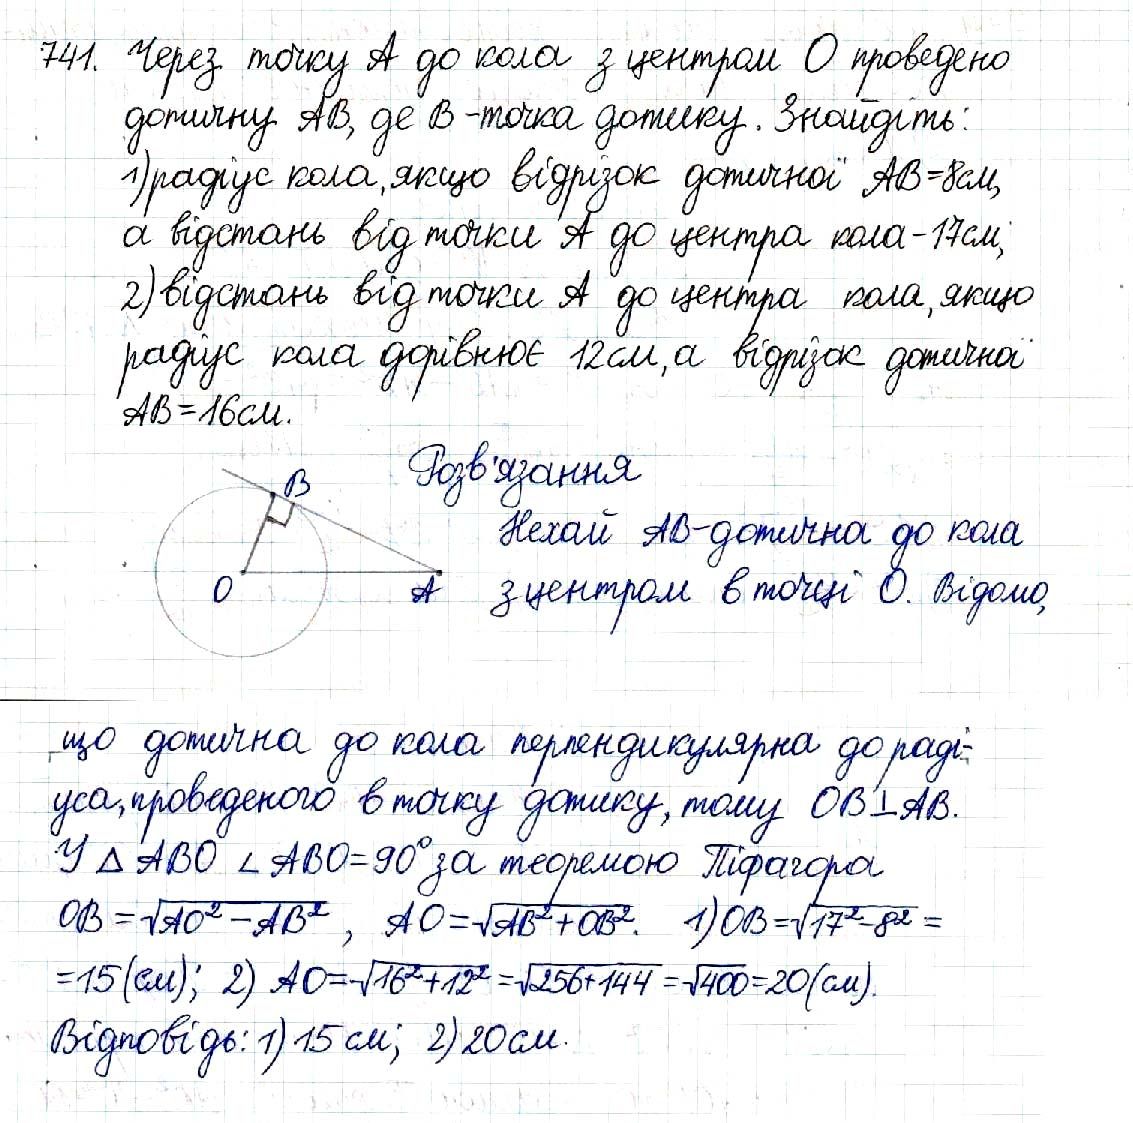 741. Через точку А до кола з центром О проведено
дотичну АВ, де В - точка дотику. Знайдіть:
1) радіус кола, якщо відрізок дотичної АВ=8см,
а відстань від точки А до центра кола - 17см;
2) відстань від точки А до центра кола, якщо
радіус кола дорівнює 12см, а відрізок дотичної
АВ=16см.
Розв'язання
В
О
А
Нехай АВ - дотична до кола
з центром в точці О. Відомо,
що дотична до кола перпендикулярна до раді-
уса, проведеного в точку дотику, тому ОВ⊥АВ.
У △АВО ∠АВО=90° за теоремою Піфагора
ОВ=√(АО²-АВ²), АО=√(АВ²+ОВ²). 1) ОВ=√(17²-8²)=
=15(см); 2) АО=√(16²+12²)=√(256+144)=√400=20(см).
Відповідь: 1) 15 см; 2) 20см.